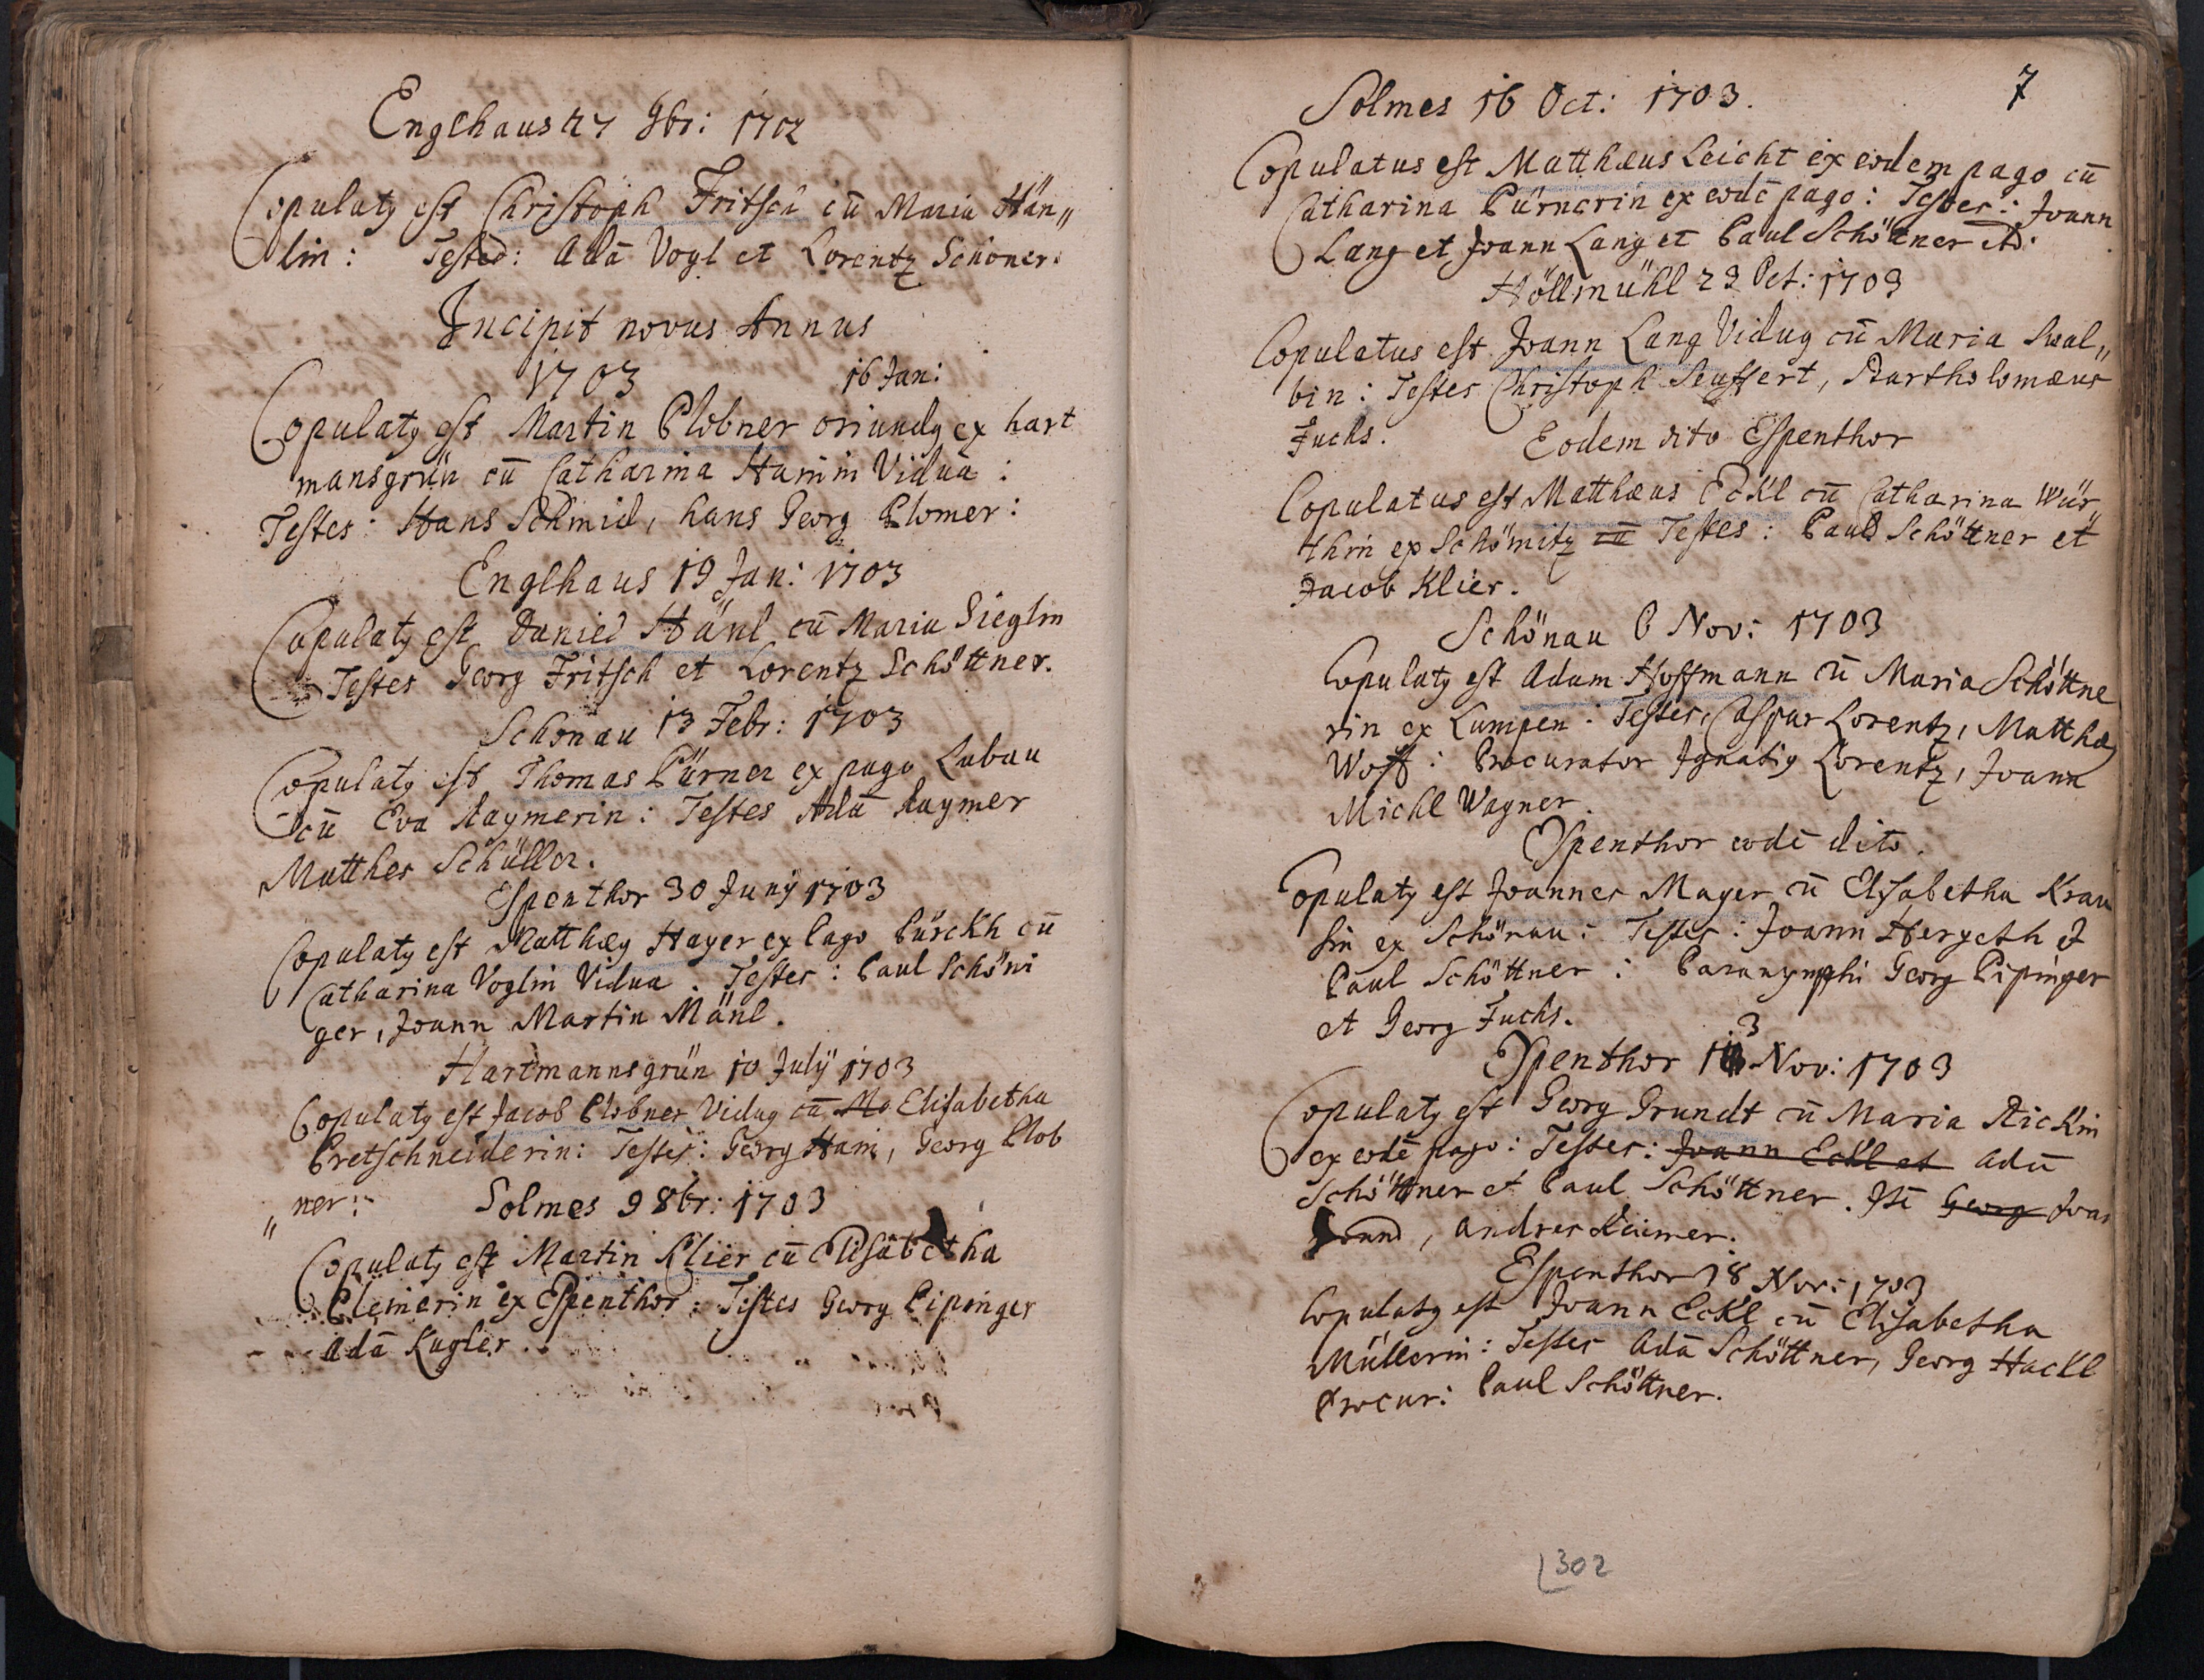 Englhaus 27 9br: 1702
Copulatq est Christoph Fritsch cū Maria Hän„
lin: Testes: Adā Vogl et Lorentz Schöner:
Incipit novus Annus
1703 16 Jan:
Copulatq est Martin Plobner oriundq ex hart
mansgrün cū Catharina Hamin Vidua:
Testes: Hans Schmid, hans Georg Plomer:
Englhaus 19 Jan: 1703
Copulatq est Daniel Hänl cū Maria Sieglin
Testes Georg Fritsch et Lorentz Schöttner.
Schönau 13 Febr: 1703
Copulatq est Thomas Pürner ex pago Lubau
cū Eva Raymerin: Testes Adā Raymer
Matthes Schüller.
Espenthor 30 Junÿ 1703
Copulatq est Matthæq Hayer ex Pago Pürckh cū
Catharina Voglin Vidua. Testes: Paul Schöni
ger, Joann Martin Mänl.
Hartmannsgrün 10 Julÿ 1703
Copulatq est Jacob Plobner Viduq cū Ma Elisabetha
Pretschneiderin: Testes: Georg Ham, Georg Plob
„ner:
Solmes 9 8br: 1703
Copulatq est Martin Klier cū Elisabetha
Plemerin ex Espenthor: Testes Georg Pipinger
Adā Kugler.
7
Solmes 16 Oct: 1703.
Copulatus est Matthæus Leicht ex eodem pago cū
Catharina Pürnerin ex eodē pago: Testes: Joann
Lang et Joann Lang et Paul Schöttner
Höllmühl 23 Oct: 1703
Copulatus est Joann Lang Viduq cū Maria Swal„
bin: Testes Christoph Seuffert, Bartholomæus
Fuchs.
Eodem dito Espenthor
Copulatus est Matthæus Eckl cū Catharina Wür„
thin ex Schömitz cū Testes: Paul Schöttner et
Jacob Klier.
Schönau 6 Nov: 1703
Copulatq est Adam Hoffmann cū Maria Schöttne
rin ex Lumpen: Testes, Caspar Lorentz, Matthæq
Woff: Procurator Ignatiq Lorentz, Joann
Michl Wagner.
Espenthor eodē dito.
Copulatq est Joannes Mayer cū Elisabetha Krau
sin ex Schönau: Testes: Joann Hergeth et
Paul Schöttner: Paranymphi Georg Pipinger
et Georg Fuchs.
Espenthor 13 Nov: 1703
Copulatq est Georg Grundt cū Maria Rickin
ex eodē pago: Testes: Joann Eckl et Adā
Schöttner et Paul Schöttner. Itē Georg Joan
, Andres Reimer.
Espenthor 18 Nov: 1703
Copulatq est Joann Eckl cū Elisabetha
Müllerin: Testes Adā Schöttner, Georg Hackl
Procur: Paul Schöttner.
302